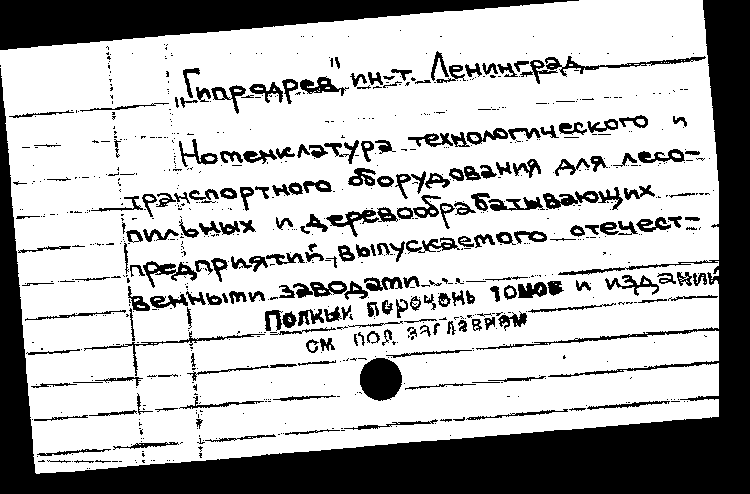 „Гипродрев", ин-т. Ленинград
Номенклатура технологического и
транспортного оборудования для лесо-
пильных и деревообрабатывающих
предприятий, выпускаемого отечест-
венными заводами...
Полный перечень томов и изданий
см под заглавием